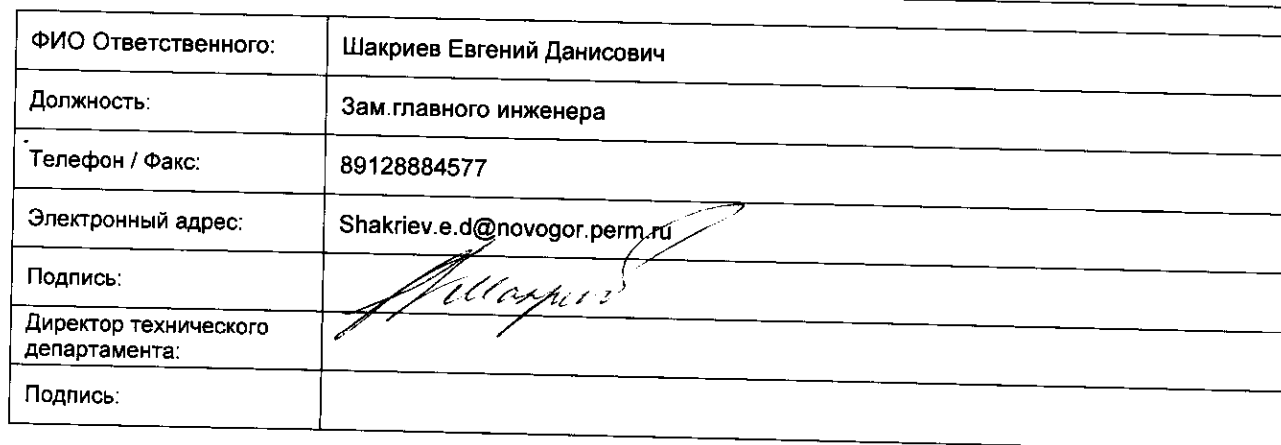 ФИО Ответственного: Шакриев Евгений Данисович
Должность: Зам.главного инженера
Телефон / Факс: 89128884577
Электронный адрес: Shakriev.e.d@novogor.perm.ru
Подпись:
Директор технического
департамента:
Подпись: